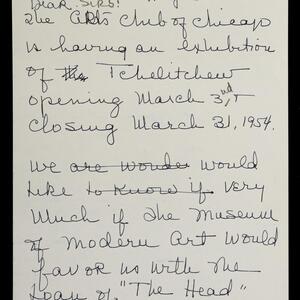 Dear Sirs:
The Arts Club of Chicago
is having an exhibition
of the Tchelitchew
opening March 3rd,
closing March 31, 1954.
We are wonder would
like to know if very
much if the Museum
of Modern Art would
favor us with the
loan of "The Head"